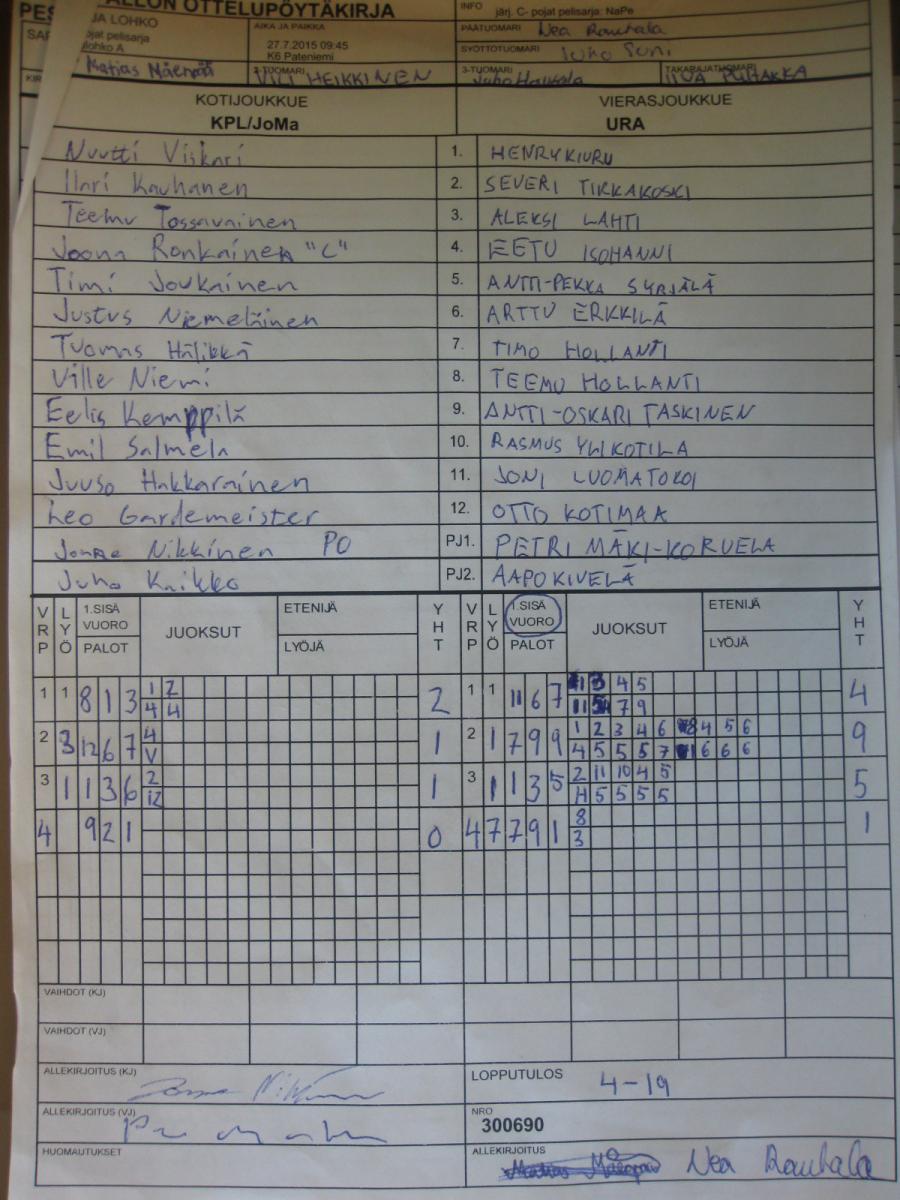 PESÄPALLON OTTELUPÖYTÄKIRJA
INFO järj. C- pojat pelisarja: NaPe
JA LOHKO
ojat pelisarja
lohko A
AIKA JA PAIKKA
27.7.2015 09:45
K6 Pateniemi
PÄÄTUOMARI Nea Rauhala
SYÖTTÖTUOMARI Juho Suni
KIR Matias Mäenpää
2-TUOMARI VILI HEIKKINEN
3-TUOMARI Juho
TAKARAJATUOMARI PUHAKKA
KOTIJOUKKUE VIERASJOUKKUE
KPL/JoMa URA
Nuutti Viskari 1. HENRY KIURU
Ilari Kauhanen 2. SEVERI TIRKAKOSKI
Teemu Tossavainen 3. ALEKSI LAHTI
Joona Ronkainen "C" 4. EETU ISOHANNI
Timi Joukainen 5. ANTTI-PEKKA SYRJÄLÄ
Justus Niemeläinen 6. ARTTU ERKKILÄ
Tuomas Hälikkä 7. TIMO HOLLANTI
Ville Niemi 8. TEEMU HOLLANTI
Eelis Kemppilä 9. ANTTI-OSKARI TASKINEN
Emil Salmela 10. RASMUS YLIKOTILA
Juuso Hakkarainen 11. JONI LUOMATOKOI
Leo Gardemeister 12. OTTO KOTIMAA
Nikkinen PO PJ1. PETRI MÄKI-KORVELA
Juha Kaikko PJ2. AAPO KIVELÄ
VRP LYÖ 1.SISÄ VUORO PALOT JUOKSUT ETENIJÄ LYÖJÄ YHT VRP LYÖ 1.SISÄ VUORO PALOT JUOKSUT ETENIJÄ LYÖJÄ YHT
1 1 8 1 3 1 2 2 1 1 11 6 7 4 5 4
4 4 7 9
2 3 12 6 7 4 1 2 1 7 9 9 1 2 3 4 6 8 4 5 6 9
V 4 5 5 5 7 1 6 6 6
3 1 1 3 6 2 1 3 1 1 3 5 2 11 10 4 5 5
12 H 5 5 5 5
4 9 2 1 0 4 7 7 9 1 8 1
3
VAIHDOT (KJ)
VAIHDOT (VJ)
ALLEKIRJOITUS (KJ)
LOPPUTULOS 4-19
ALLEKIRJOITUS (VJ)
NRO
300690
HUOMAUTUKSET
ALLEKIRJOITUS Nea Rauhala